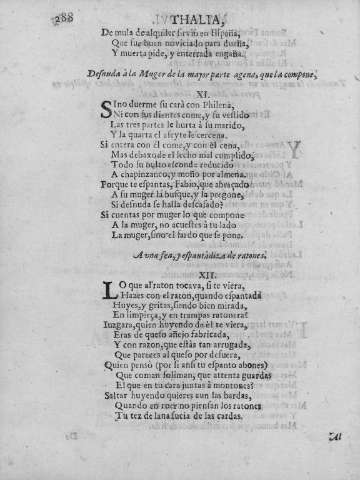 288 THALIA,
De mula de alquiler sirviò en España,
Que fue buen noviciado para dueña,
Y muerta pide, y enterrada engaña.
Desnuda à la Muger de la mayor parte agena, que la compone,
XI.
SIno duerme su cara con Philena,
Ni con sus dientes come, y su vestido
Las tres partes le hurta à su marido,
Y la quarta el afeyte le cercena.
Si entera con él come, y con él cena,
Mas debaxo de el lecho mal cumplido,
Todo su bulto esconde reducido
A chapinzanco, y moño por almena.
Porque te espantas, Fabio, que abraçado
A su muger la busque, y la pregone,
Si desnuda se halla descasado?
Si cuentas por muger lo que compone
A la muger, no acuestes à tu lado
La muger, sino el fardo que se pone.
A una fea, y espantadiza de ratones.
XII.
LO que al raton tocava, si te viera,
Hazes con el raton, quando espantada
Huyes, y gritas, siendo bien mirada,
En limpieça, y en trampas ratonera?
Iuzgara, quien huyendo de èl te viera,
Eras de queso añejo fabricada,
Y con razon, que estàs tan arrugada,
Que pareces al queso por defuera.
Quien pensó (por si ansi tu espanto abones)
Que coman soliman, que atenta guardas
El que en tu cara juntas à montones?
Saltar huyendo quieres aun las bardas,
Quando en roer no piensan los ratones
Tu tez de lana sucia de las cardas.